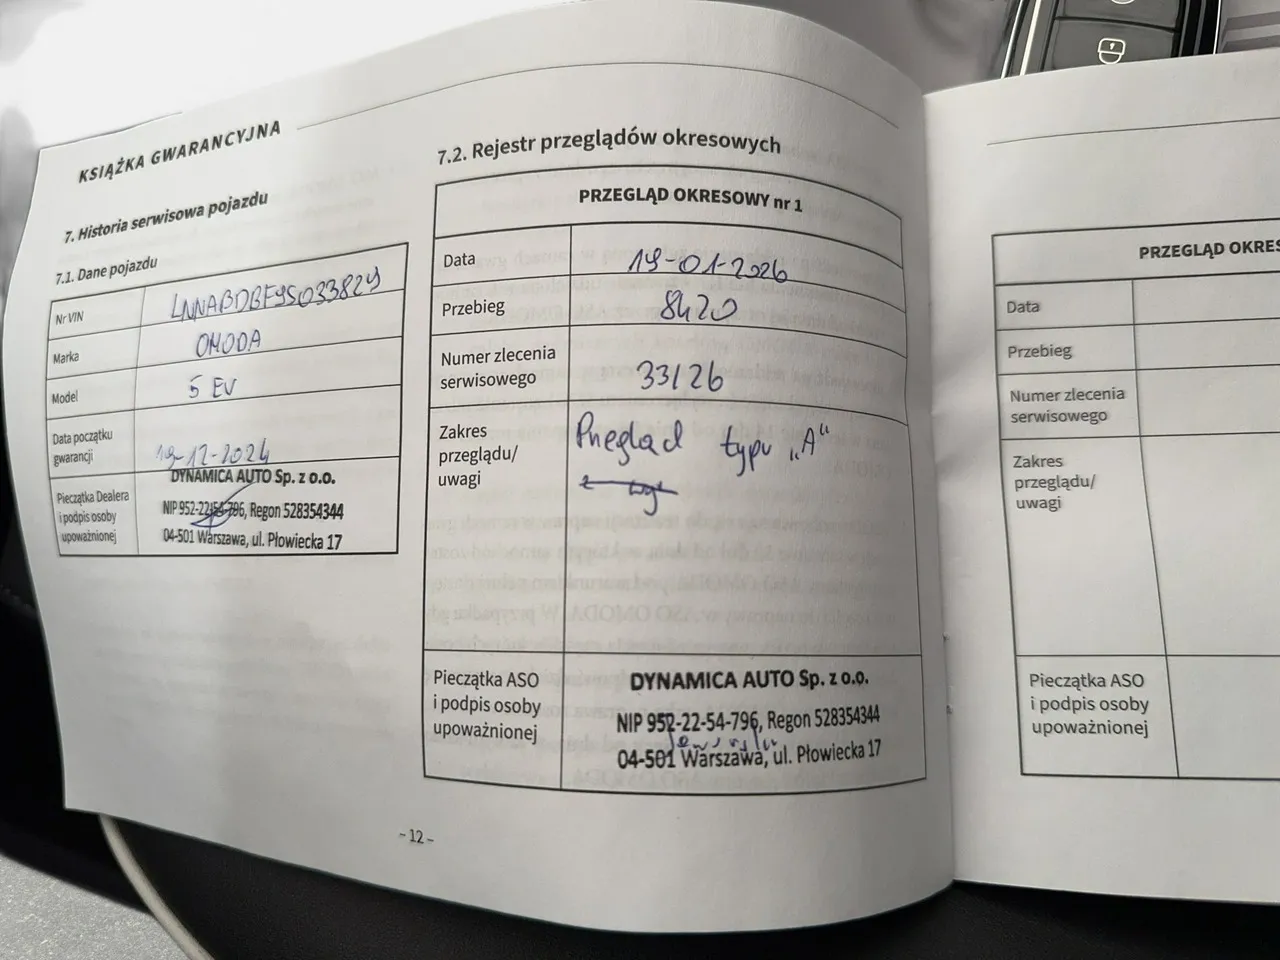 KSIĄŻKA GWARANCYJNA
7. Historia serwisowa pojazdu
7.1. Dane pojazdu
Nr VIN LNNABDBEYSO33829
Marka OMODA
Model 5 EV
Data początku
gwarancji 19-12-2024
Pieczątka Dealera
i podpis osoby
upoważnionej
DYNAMICA AUTO Sp. z o.o.
NIP 952-22-54-796, Regon 528354344
04-501 Warszawa, ul. Płowiecka 17
7.2. Rejestr przeglądów okresowych
PRZEGLĄD OKRESOWY nr 1
Data 19-01-2026
Przebieg 8420
Numer zlecenia
serwisowego 33/26
Zakres
przeglądu/
uwagi
Przegląd typu „A"
Pieczątka ASO
i podpis osoby
upoważnionej
DYNAMICA AUTO Sp. z o.o.
NIP 952-22-54-796, Regon 528354344
04-501 Warszawa, ul. Płowiecka 17
- 12 -
PRZEGLĄD OKRES
Data
Przebieg
Numer zlecenia
serwisowego
Zakres
przeglądu/
uwagi
Pieczątka ASO
i podpis osoby
upoważnionej